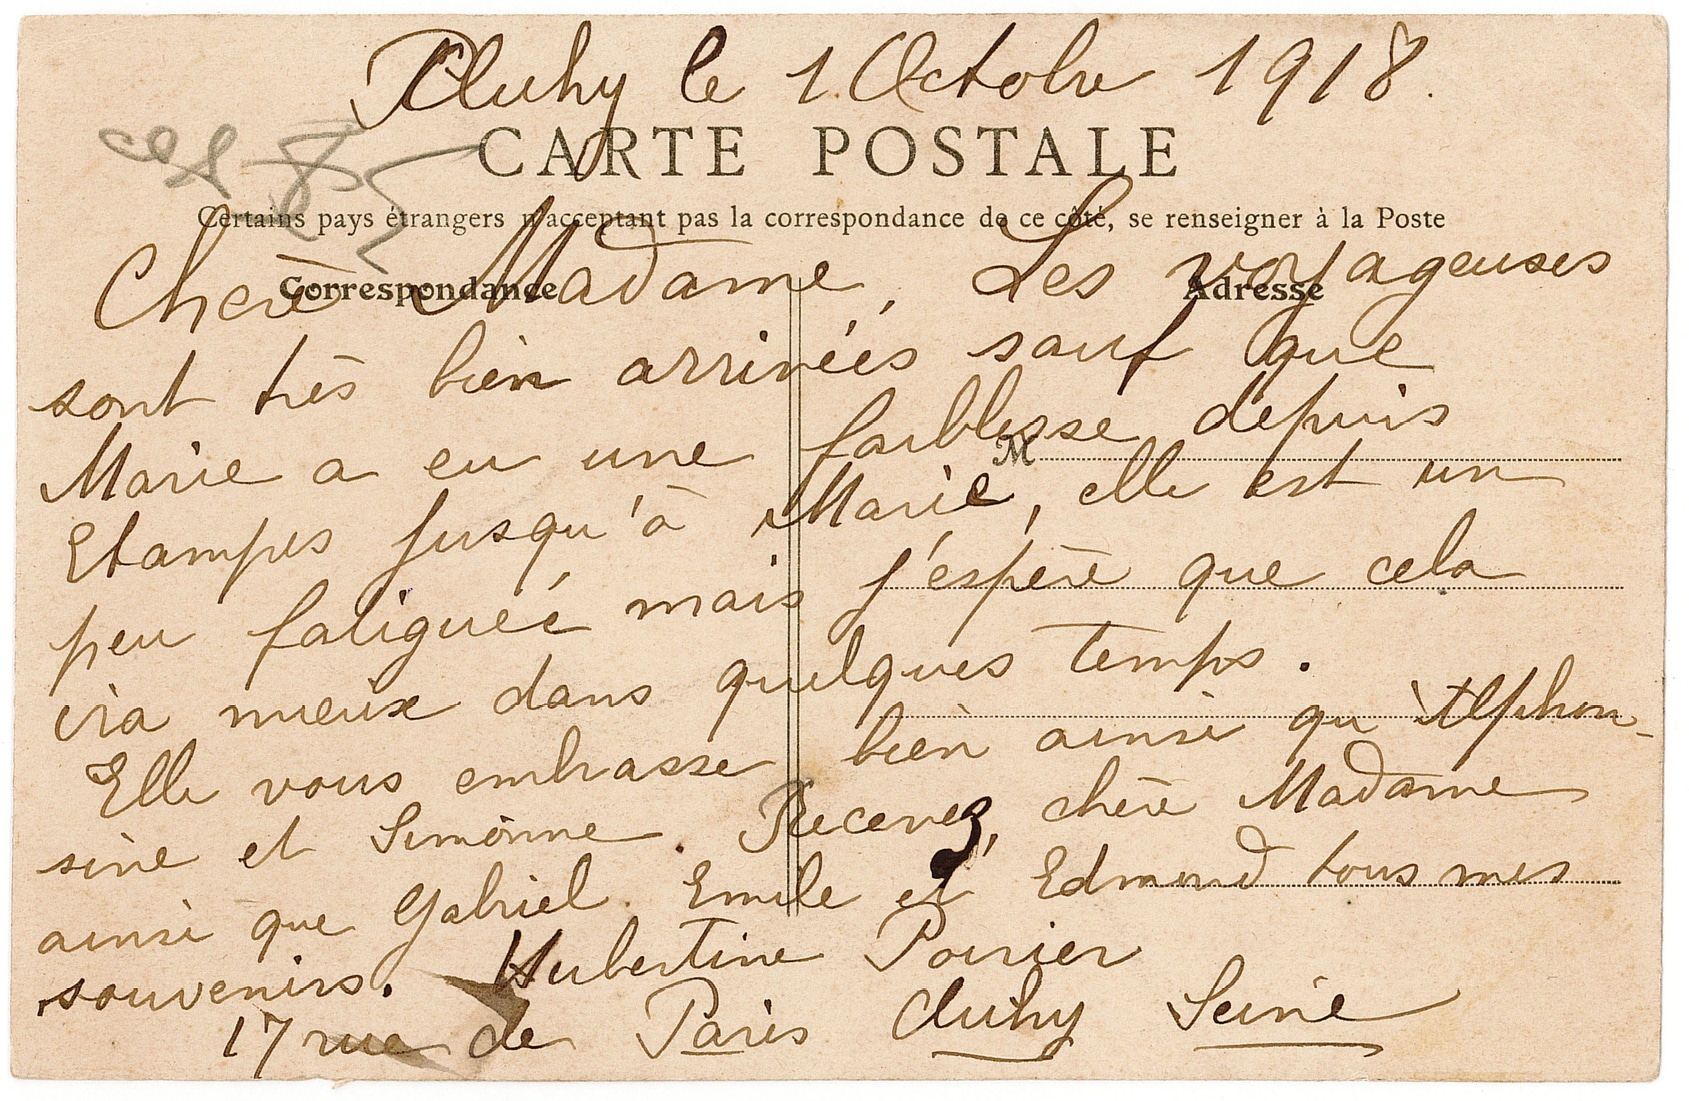 Clichy le 1 Octobre 1918.
CARTE POSTALE
Certains pays étrangers n'acceptant pas la correspondance de ce côté, se renseigner à la Poste
Correspondance
Adresse
Chère Madame, Les voyageuses
sont très bien arrivées sauf que
Marie a eu une faiblesse depuis
Etampes jusqu'à Marie, elle est un
M
peu fatiguée mais j'espère que cela
ira mieux dans quelques temps.
Elle vous embrasse bien ainsi qu'Alphon-
sine et Simonne. Recevez, chère Madame
ainsi que Gabriel. Emile et Edmond tous mes
souvenirs. Hubertine Poirier
17 rue de Paris Clichy Seine